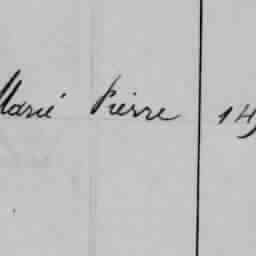 Marié Pierre 14